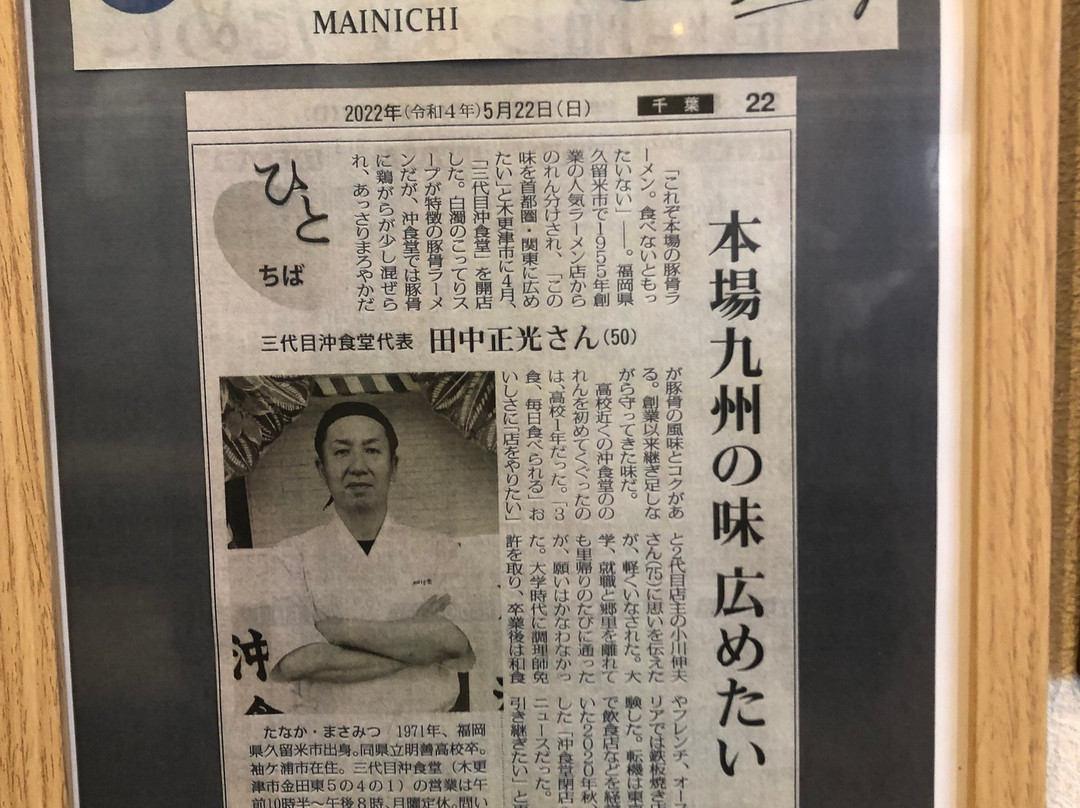 MAINICHI
2022年(令和4年)5月22日(日)
千葉
22
本場九州の味 広めたい
ひと
ちば
「これぞ本場の豚骨ラ
ーメン。食べないともっ
たいない」――。福岡県
久留米市で1955年創
業の人気ラーメン店から
のれん分けされ、「この
味を首都圏・関東に広め
たい」と木更津市に4月、
「三代目沖食堂」を開店
した。白濁のこってりス
ープが特徴の豚骨ラーメ
ンだが、沖食堂では豚骨
に鶏がらが少し混ぜら
れ、あっさりまろやかだ
三代目沖食堂代表 田中正光さん(50)
が豚骨の風味とコクがあ
る。創業以来継ぎ足しな
がら守ってきた味だ。
高校近くの沖食堂のの
れんを初めてくぐったの
は、高校1年だった。「3
食、毎日食べられる」お
いしさに「店をやりたい」
と2代目店主の小川伸夫
さん(75)に思いを伝えた
が、軽くいなされた。大
学、就職と郷里を離れて
も里帰りのたびに通った
が、願いはかなわなかっ
た。大学時代に調理師免
許を取り、卒業後は和食
やフレンチ、オース
リアでは鉄板焼き
験した。転機は東
で飲食店などを経
いた2020年秋、
した「沖食堂閉店
ニュースだった。
引き継ぎたい」と
沖
食
たなか・まさみつ 1971年、福岡
県久留米市出身。同県立明善高校卒。
袖ケ浦市在住。三代目沖食堂(木更
津市金田東5の4の1)の営業は午
前10時半～午後8時、月曜定休。問い